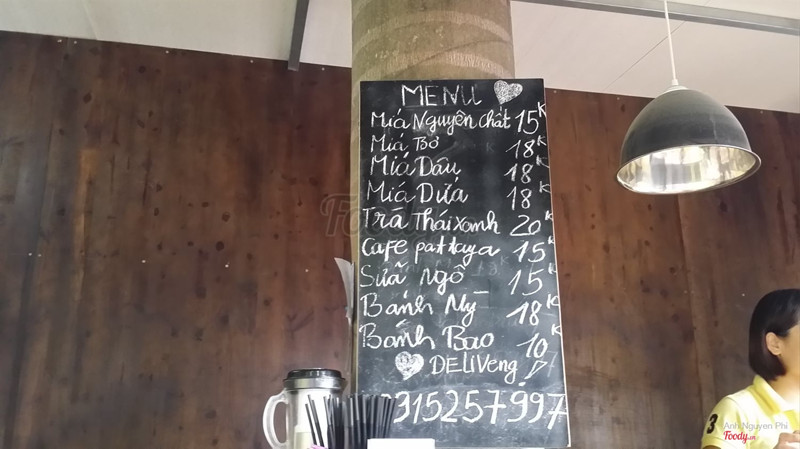 MENU
Miá Nguyên chất 15K
Miá Bơ 18K
Miá Dâu 18K
Miá Dứá 18K
Trá Thái xanh 20K
Cafe pattaya 15K
Sữã Ngô 15K
Bánh Mỹ 18K
Bánh Bao 10K
DELIVeng!
0915257997
3
Anh Nguyen Phi
Foody.vn